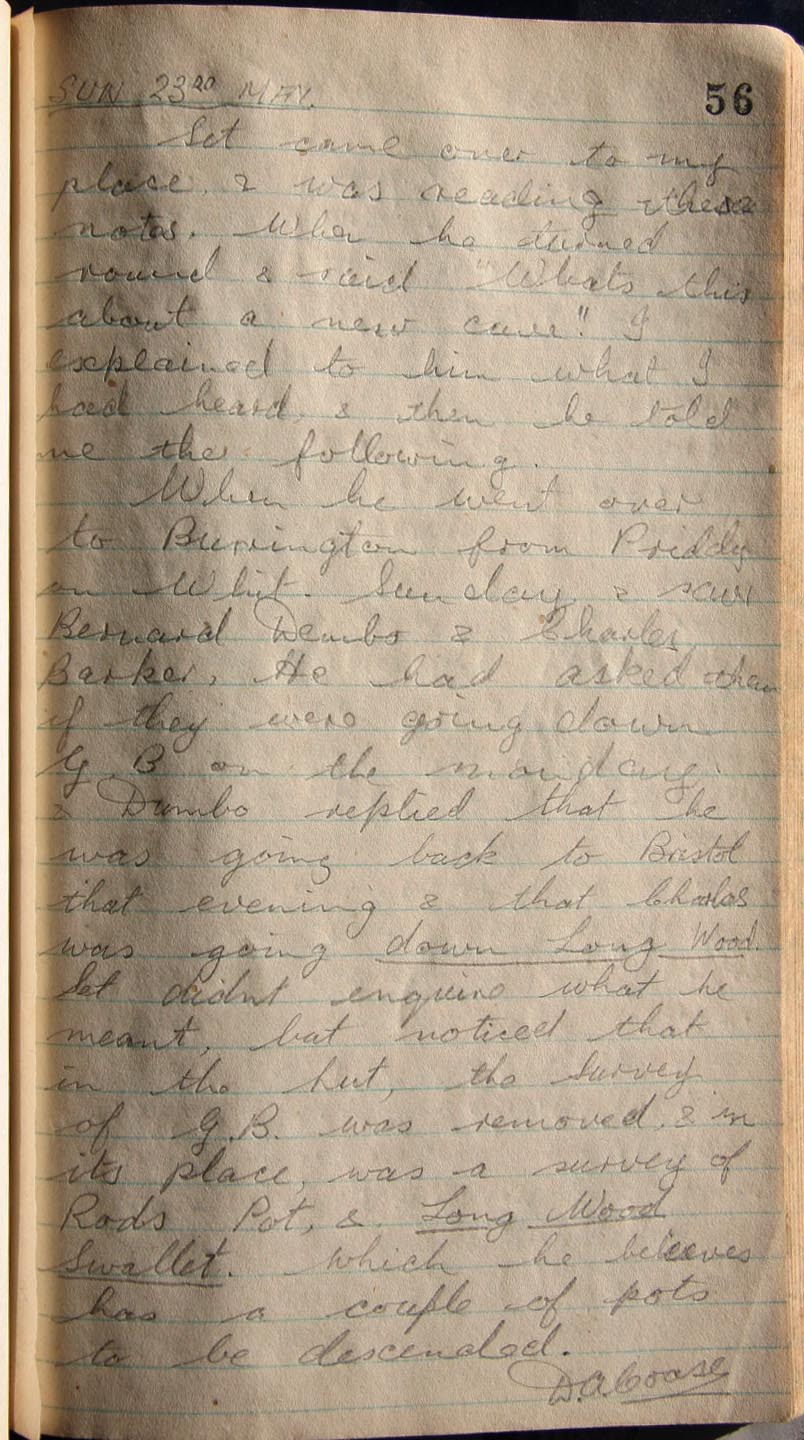 56
SUN 23RD MAY.
Set came over to my
place, & was reading these
notes. When he turned
round & said "Whats this
about a new cave" I
explained to him what I
had heard, & then he told
me the following.
When he went over
to Burrington from Priddy
on Whit. Sunday & saw
Bernard Dembo & Charles
Barker, He had asked them
if they were going down
G B on the monday.
& Dumbo replied that he
was going back to Bristol
that evening & that Charles
was going down Long Wood.
Set didnt enquire what he
meant, but noticed that
in the hut, the survey
of G.B. was removed, & in
its place, was a survey of
Rods Pot, & Long Wood
Swallet. Which he believes
has a couple of pots
to be descended.
D.A. Coase